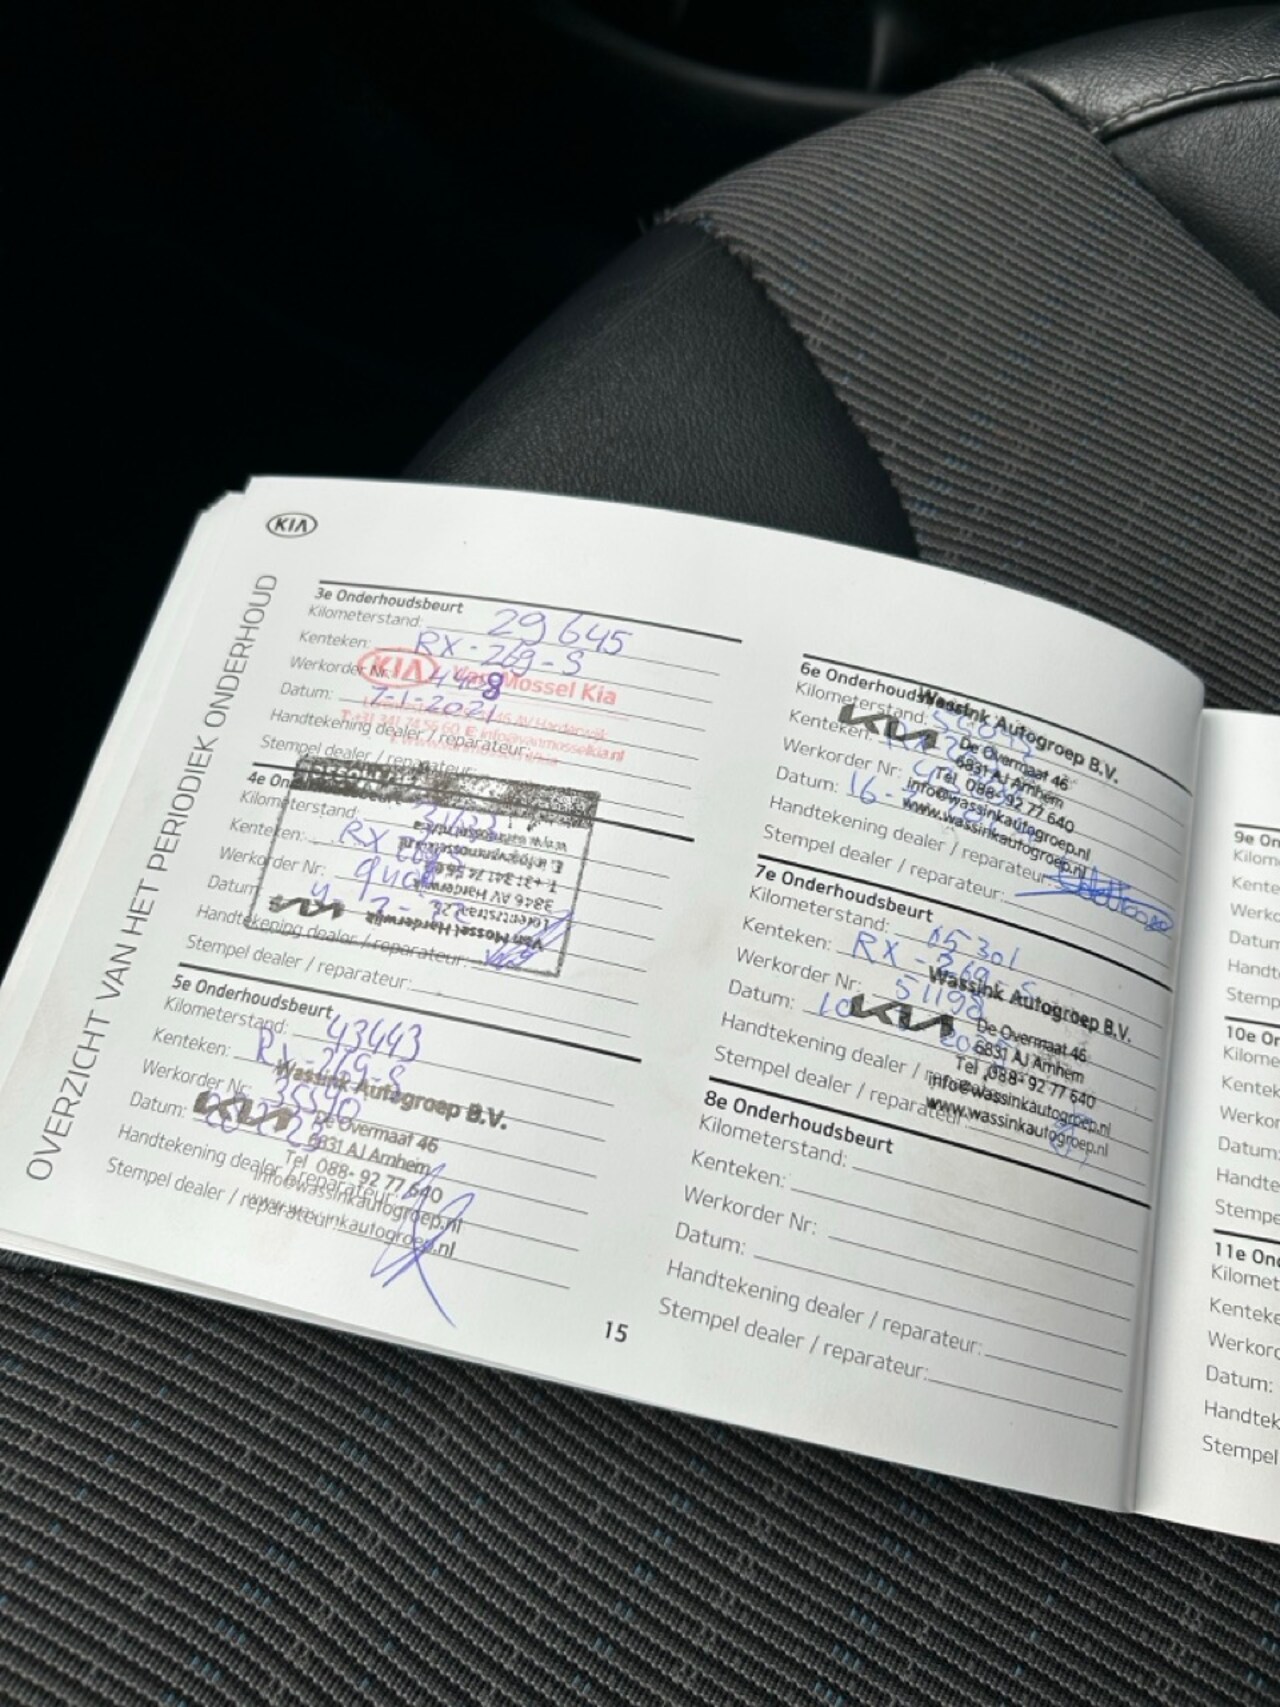 KIA
OVERZICHT VAN HET PERIODIEK ONDERHOUD
3e Onderhoudsbeurt
Kilometerstand: 29645
Kenteken: RX-269-S
Werkorder Nr:
KIA Van Mossel Kia
Datum: 7-1-2021
Handtekening dealer / reparateur:
Stempel dealer / reparateur:
4e Onderhoudsbeurt
Kilometerstand:
Kenteken: RX
Werkorder Nr:
Datum:
Handtekening dealer / reparateur:
Van Mossel Harderwijk
3846 AV Harderwijk
KIA
Stempel dealer / reparateur:
5e Onderhoudsbeurt
Kilometerstand: 43443
Kenteken: RX-269-S
Werkorder Nr: 35590
Datum:
Handtekening dealer / reparateur:
Stempel dealer / reparateur:
KIA
Wassink Autogroep B.V.
De Overmaat 46
6831 AJ Arnhem
Tel 088- 92 77 640
info@wassinkautogroep.nl
www.wassinkautogroep.nl
6e Onderhoudsbeurt
Kilometerstand:
Kenteken:
Werkorder Nr:
Datum: 16-
Handtekening dealer / reparateur:
Stempel dealer / reparateur:
KIA
Wassink Autogroep B.V.
De Overmaat 46
6831 AJ Arnhem
Tel 088- 92 77 640
info@wassinkautogroep.nl
www.wassinkautogroep.nl
7e Onderhoudsbeurt
Kilometerstand: 65301
Kenteken: RX-269-S
Werkorder Nr: 51198
Datum: 10
Handtekening dealer / reparateur:
Stempel dealer / reparateur:
KIA
Wassink Autogroep B.V.
De Overmaat 46
6831 AJ Arnhem
Tel 088- 92 77 640
info@wassinkautogroep.nl
www.wassinkautogroep.nl
8e Onderhoudsbeurt
Kilometerstand:
Kenteken:
Werkorder Nr:
Datum:
Handtekening dealer / reparateur:
Stempel dealer / reparateur:
15
9e On
Kilom
Kente
Werko
Datum
Handt
Stemp
10e On
Kilome
Kentek
Werkor
Datum:
Handte
Stempe
11e Ond
Kilomet
Kenteke
Werkord
Datum:
Handtek
Stempel